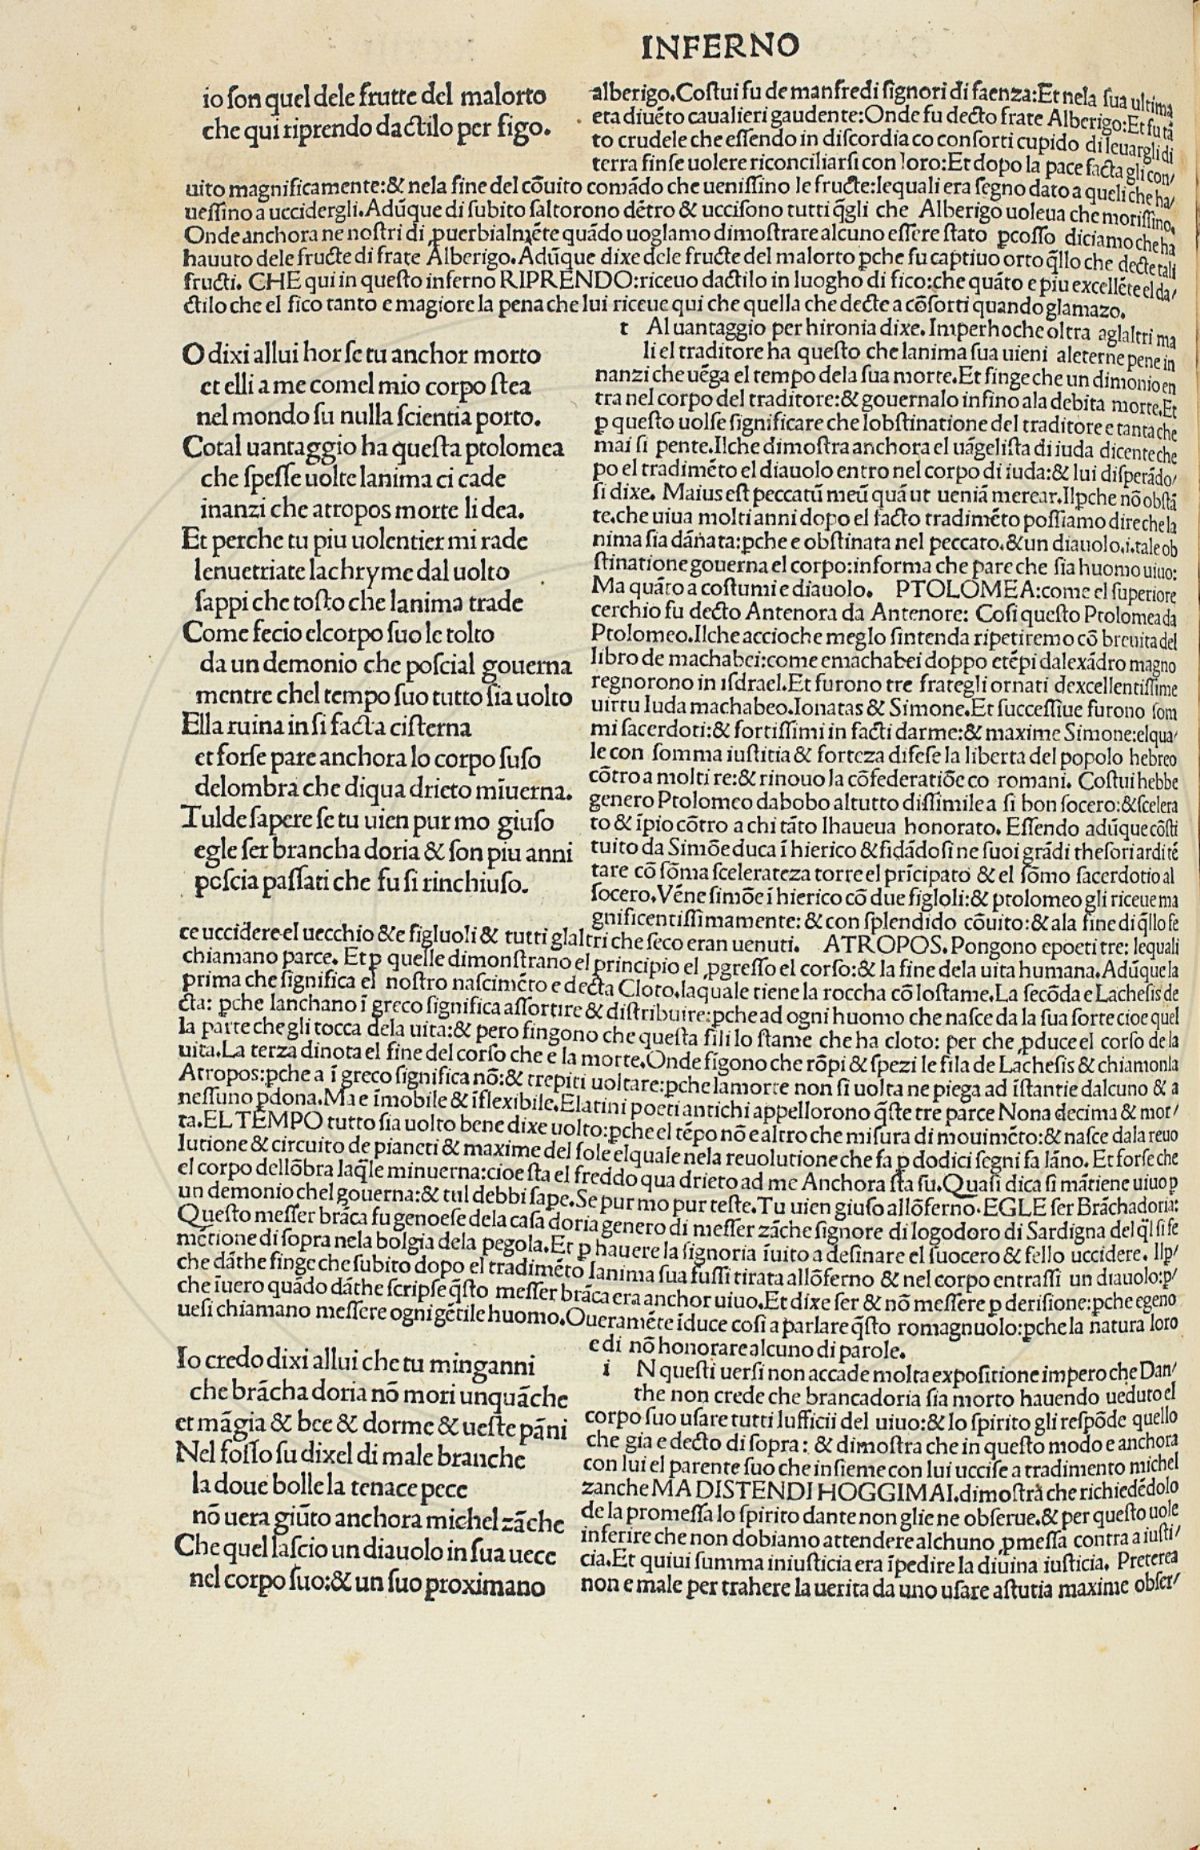 INFERNO
io son quel dele frutte del malorto
che qui riprendo dactilo per figo.
alberigo.Costui fu de manfredi signori di faenza:Et nela sua ultima
eta diuẽto caualieri gaudente:Onde fu decto frate Alberigo:Et fu tã
to crudele che essendo in discordia co consorti cupido di leuargli di
terra finse uolere riconciliarsi con loro:Et dopo la pace facta gli con/
uito magnificamente:& nela fine del cõuito comãdo che uenissino le fructe:lequali era segno dato a queli che ha/
uessino a uccidergli.Adũque di subito saltorono dẽtro & uccisono tutti q̃gli che Alberigo uoleua che morissino.
Onde anchora ne nostri di ꝓuerbialmẽte quãdo uoglamo dimostrare alcuno essere stato ꝑcosso diciamo che ha
hauuto dele fructe di frate Alberigo.Adũque dixe dele fructe del malorto ꝑche fu captiuo orto q̃llo che decte tali
fructi. CHE qui in questo inferno RIPRENDO:riceuo dactilo in luogho di fico:che quãto e piu excellẽte el da/
ctilo che el fico tanto e magiore la pena che lui riceue qui che quella che decte a cõsorti quando glamazo.
O dixi allui hor se tu anchor morto
et elli a me comel mio corpo stea
nel mondo su nulla scientia porto.
Cotal uantaggio ha questa ptolomea
che spesse uolte lanima ci cade
inanzi che atropos morte li dea.
Et perche tu piu uolentier mi rade
lenuetriate lachryme dal uolto
sappi che tosto che lanima trade
Come fecio elcorpo suo le tolto
da un demonio che poscial gouerna
mentre chel tempo suo tutto sia uolto
Ella ruina in si facta cisterna
et forse pare anchora lo corpo suso
delombra che diqua drieto mĩuerna.
Tulde sapere se tu uien pur mo giuso
egle ser brancha doria & son piu anni
poscia passati che fu si rinchiuso.
t Al uantaggio per hironia dixe. Imperhoche oltra aglaltri ma
li el traditore ha questo che lanima sua uieni aleterne pene in
nanzi che uẽga el tempo dela sua morte.Et finge che un dimonio en
tra nel corpo del traditore:& gouernalo infino ala debita morte.Et
ꝑ questo uolse significare che lobstinatione del traditore e tanta che
mai si pente.Ilche dimostra anchora el uãgelista di iuda dicente che
po el tradimẽto el diauolo entro nel corpo di iuda:& lui disperãdo/
si dixe. Maius est peccatũ meũ quã ut ueniã merear.Ilꝑche nõ obstã
te.che uiua molti anni dopo el facto tradimẽto possiamo dire che la
nima sia dãnata:ꝑche e obstinata nel peccato.&un diauolo.i.tale ob
stinatione gouerna el corpo:informa che pare che sia huomo uiuo:
Ma quãto a costumi e diauolo. PTOLOMEA:come el superiore
cerchio fu decto Antenora da Antenore: Cosi questo Ptolomea da
Ptolomeo.Ilche accioche meglo sintenda ripetiremo cõ breuita del
libro de machabei:come emachabei doppo etẽpi dalexãdro magno
regnorono in isdrael.Et furono tre frategli ornati dexcellentissime
uirtu Iuda machabeo.Ionatas & Simone.Et successiue furono som
mi sacerdoti:& fortissimi in facti darme:& maxime Simone:elqua/
le con somma iustitia & forteza difese la liberta del popolo hebreo
cõtro a molti re:& rinouo la cõfederatiõe co romani. Costui hebbe
genero Ptolomeo dabobo altutto dissimile a si bon socero:&scelera
to & ĩpio cõtro a chi tãto lhaueua honorato. Essendo adũque cõsti
tuito da Simõe duca ĩ hierico &fidãdosi ne suoi grãdi thesori ardi té
tare cõ sõma scelerateza torre el prĩcipato & el sõmo sacerdotio al
socero.Vẽne simõe ĩ hierico cõ due figloli:& ptolomeo gli riceue ma
gnificentissimamente: & con splendido cõuito:& ala fine di q̃llo fe
ce uccidere el uecchio &e figluoli & tutti glaltri che seco eran uenuti. ATROPOS.Pongono epoeti tre: lequali
chiamano parce. Et ꝑ quelle dimonstrano el principio el ꝓgresso el corso:& la fine dela uita humana.Adũque la
prima che significa el nostro nascimẽto e decta Cloto.laquale tiene la roccha cõ lostame.La secõda e Lachesis de
cta: ꝑche lanchano ĩ greco significa assortire & distribuire:ꝑche ad ogni huomo che nasce da la sua sorte cioe quel
la parte che gli tocca dela uita:& pero fingono che questa fili lo stame che ha cloto: per che ꝓduce el corso de la
uita.La terza dinota el fine del corso che e la morte.Onde fĩgono che rõpi & spezi le fila de Lachesis & chiamonla
Atropos:ꝑche a ĩ greco significa nõ:& trepiti uoltare:ꝑche lamorte non si uolta ne piega ad ĩstantie dalcuno & a
nessuno ꝑdona.Ma e ĩmobile & ĩflexibile.Elatini poeti antichi appellorono q̃ste tre parce Nona decima & mor/
ta.EL TEMPO tutto sia uolto bene dixe uolto:ꝑche el tẽpo nõ e altro che misura di mouimẽto:& nasce dala reuo
lutione & circuito de pianeti & maxime del sole elquale nela reuolutione che fa ꝑ dodici segni fa lãno. Et forse che
el corpo dellõbra laq̃le minuerna:cioe sta el freddo qua drieto ad me Anchora sta su.Quasi dica si mãtiene uiuo ꝑ
un demonio chel gouerna:& tul debbi sape.Se pur mo pur teste.Tu uien giuso allõferno.EGLE ser Brãchadoria:
Questo messer brãca fu genoese dela casa doria genero di messer zãche signore di logodoro di Sardigna del q̃l si fe
mẽtione di sopra nela bolgia dela pegola.Et ꝑ hauere la signoria ĩuito a desinare el suocero & fello uccidere. Ilꝑ/
che dãthe finge che subito dopo el tradimẽto lanima sua fussi tirata allõferno & nel corpo entrassi un diauolo:ꝑ/
che ĩuero quãdo dãthe scripse q̃sto messer brãca era anchor uiuo.Et dixe ser & nõ messere ꝑ derisione:ꝑche egeno
uesi chiamano messere ogni gẽtile huomo.Oueramẽte iduce cosi a parlare q̃sto romagnuolo:ꝑche la natura loro
e di nõ honorare alcuno di parole.
Io credo dixi allui che tu minganni
che brãcha doria nõ mori unquãche
et mãgia & bee & dorme & ueste pãni
Nel fosso su dixel di male branche
la doue bolle la tenace pece
nõ uera giũto anchora michel zãche
Che quel lascio un diauolo in sua uece
nel corpo suo:& un suo proximano
i N questi uersi non accade molta expositione impero che Dan/
the non crede che brancadoria sia morto hauendo ueduto el
corpo suo usare tutti lufficii del uiuo:& lo spirito gli respõde quello
che gia e decto di sopra: & dimostra che in questo modo e anchora
con lui el parente suo che insieme con lui uccise a tradimento michel
zanche MA DISTENDI HOGGIMAI.dimostra che richiedẽdolo
de la promessa lo spirito dante non gliene obserue.& per questo uole
inferire che non dobiamo attendere alchuno ꝓmessa contra a iusti/
cia.Et quiui summa iniusticia era ĩpedire la diuina iusticia. Preterea
non e male per trahere la uerita da uno usare astutia maxime obser/